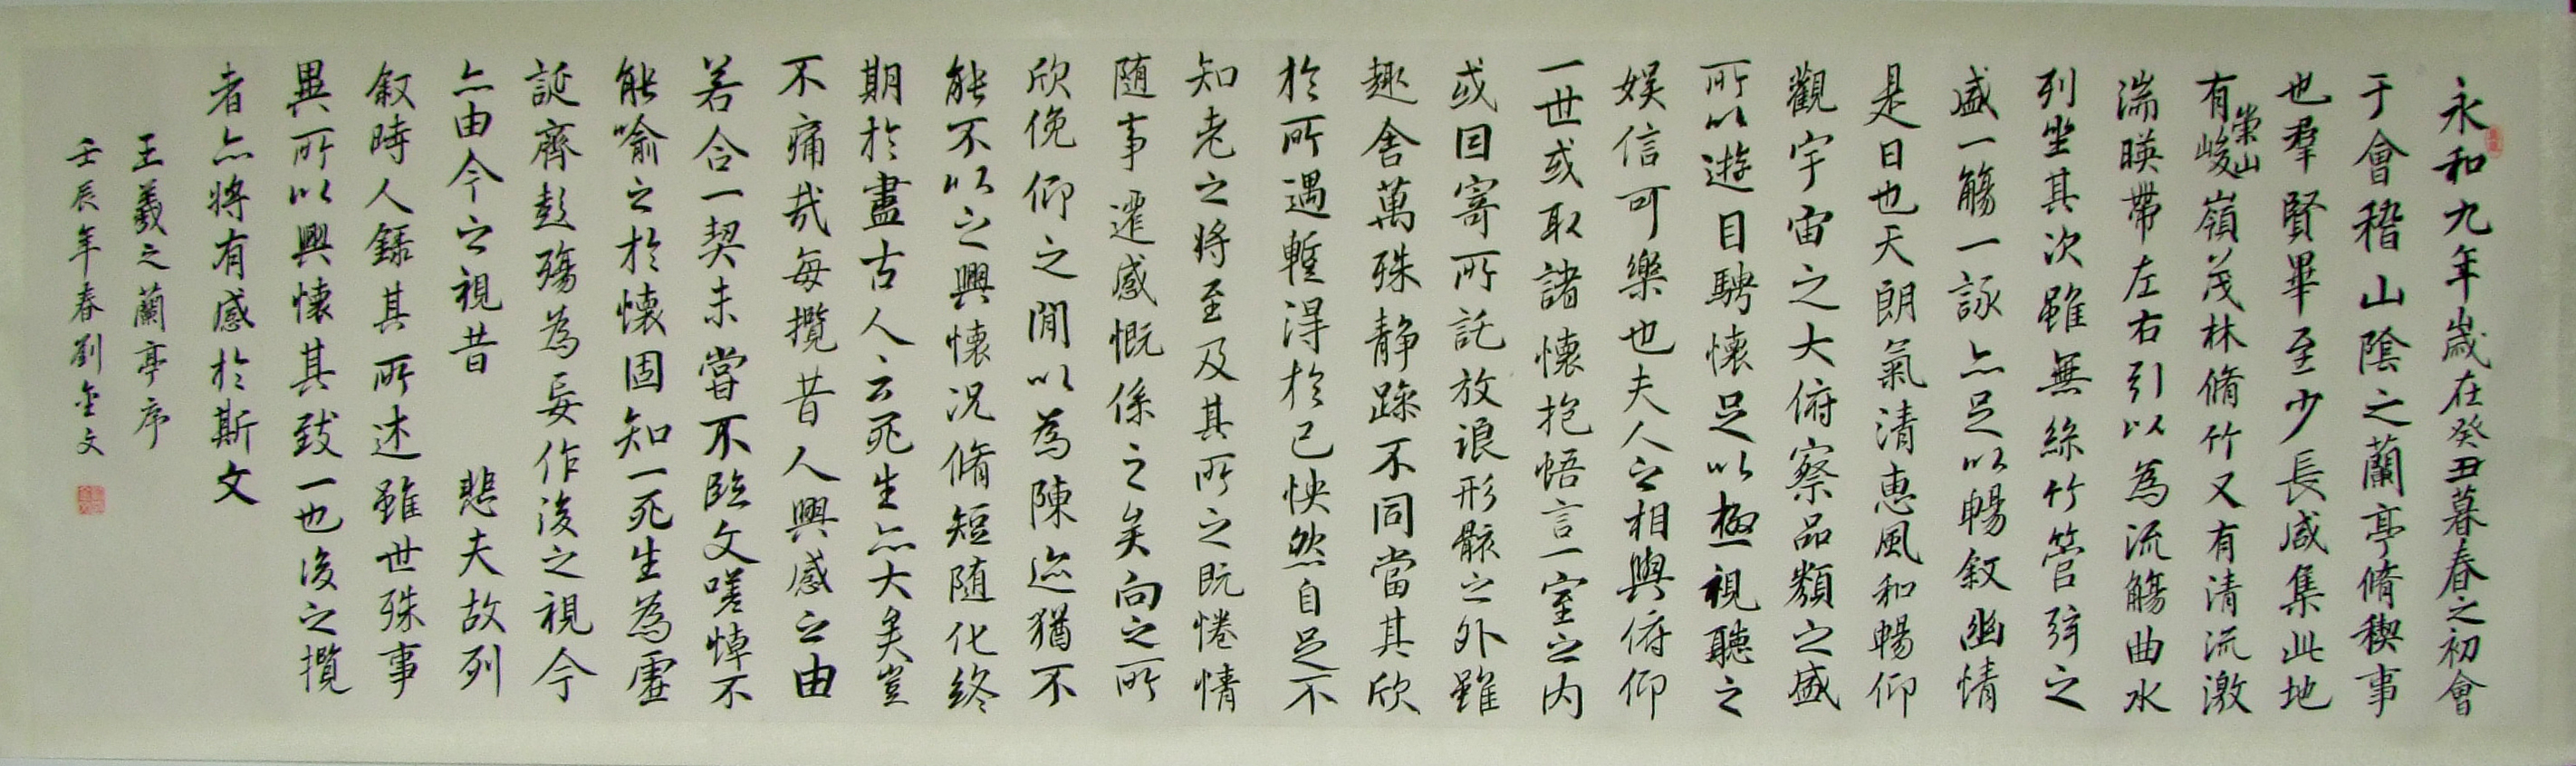 永和九年歲在癸丑暮春之初會
于會稽山陰之蘭亭脩稧事
也羣賢畢至少長咸集此地
有崇山峻嶺茂林脩竹又有清流激
湍暎帶左右引以為流觴曲水
列坐其次雖無絲竹管弦之
盛一觴一詠亦足以暢敘幽情
是日也天朗氣清惠風和暢仰
觀宇宙之大俯察品類之盛
所以遊目騁懷足以極視聽之
娛信可樂也夫人之相與俯仰
一世或取諸懷抱悟言一室之内
或因寄所託放浪形骸之外雖
趣舍萬殊静躁不同當其欣
於所遇蹔得於己怏然自足不
知老之將至及其所之既惓情
随事遷感慨係之矣向之所
欣俛仰之閒以為陳迹猶不
能不以之興懷况脩短随化終
期於盡古人云死生亦大矣豈
不痛哉每攬昔人興感之由
若合一契未嘗不臨文嗟悼不
能喻之於懷固知一死生為虛
誕齊彭殤為妄作後之視今
亦由今之視昔 悲夫故列
敘時人錄其所述雖世殊事
異所以興懷其致一也後之攬
者亦將有感於斯文
王羲之蘭亭序
壬辰年春劉金文